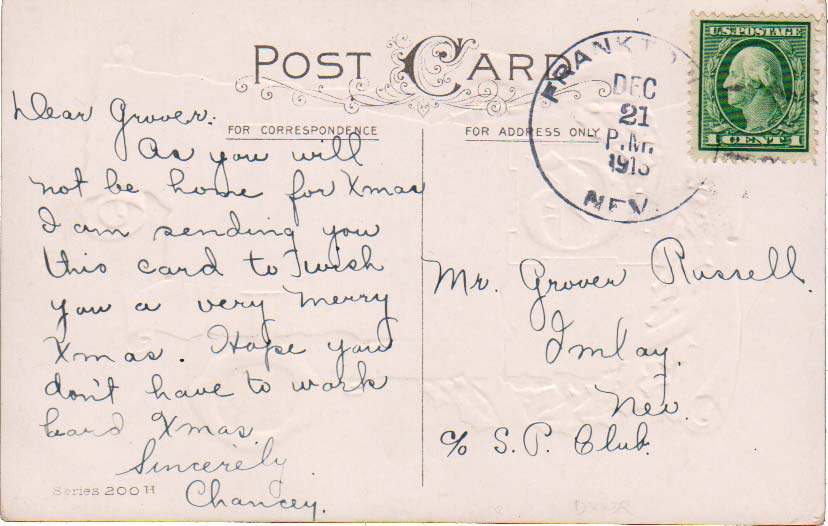 POST CARD
FOR CORRESPONDENCE
FOR ADDRESS ONLY
U.S. POSTAGE
1 CENT 1
DEC
21
P.M.
NEV.
Dear Grover:
As you will
not be home for Xmas
I am sending you
this card to wish
you a very Merry
Xmas. Hope you
don't have to work
hard Xmas.
Sincerely
Chancey.
Series 200 H
Mr. Grover Russell.
Imlay.
Nev.
c/o S.P. Club.